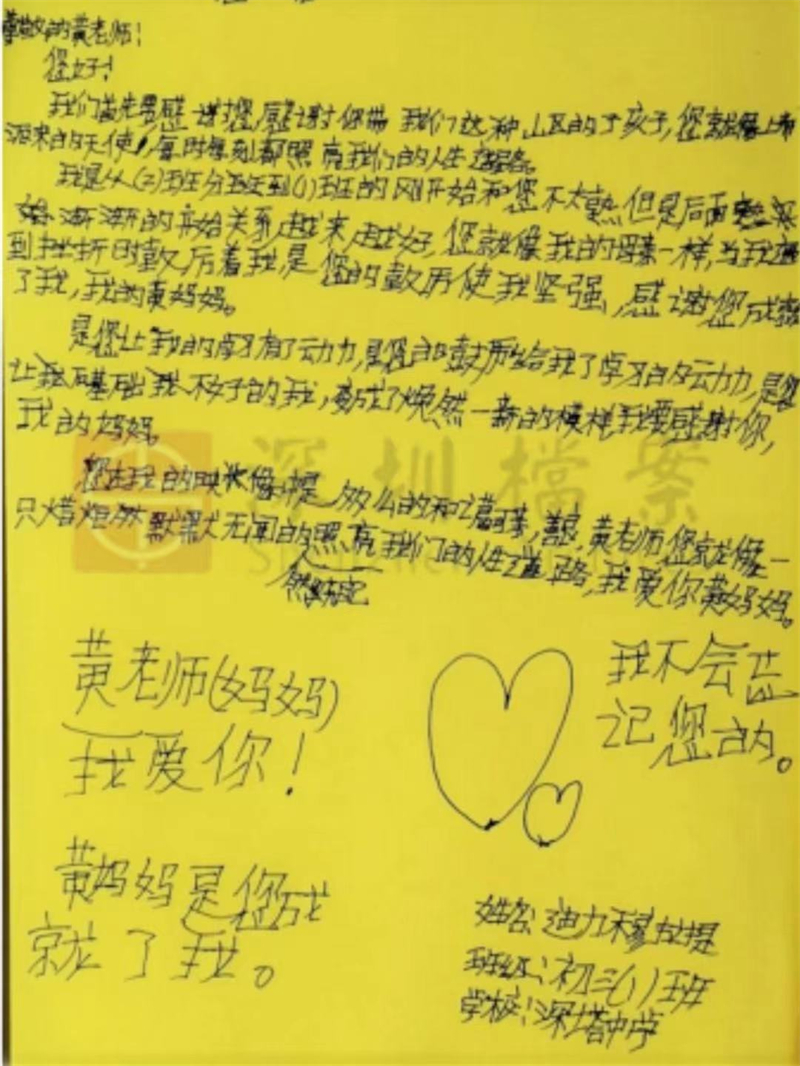 尊敬的黄老师!
您好!
我们首先要感谢您,感谢你带我们这种山区的孩子,您就像上帝
派来的天使,每时每刻都照亮我们的人生道路。
我是从(2)班分班到(1)班的刚开始和您不太熟但是后面
渐渐的开始关系越来越好,您就像我的母亲一样,当我遇
到挫折时鼓厉着我是您的鼓厉使我坚强,感谢您成就
了我,我的黄妈妈。
是您让我的学习有了动力,是您的鼓厉给我了学习的动力,是您
让我基础不好的我,变成了焕然一新的模样我要感谢你,
我的妈妈。
您在我的映像中是多么的和蔼可亲,善良,黄老师您就像一
只蜡炬然默默无闻的照亮我们的人生道路,我爱你黄妈妈。
深圳檔案
黄老师(妈妈)
我爱你!
我不会忘
记您的。
黄妈妈是您成
就了我。
姓名:迪力穆拉提
班级:初三(1)班
学校:深塔中学